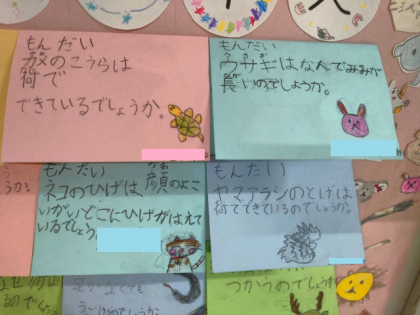 もんだい
カメのこうらは
何で
できているでしょうか。
もんだい
ウサギはなんでみみが
長いのでしょうか。
もんだい
ネコのひげは顔のよこ
かお
いがいどこにひげがはえて
いるでしょう
もんだい
ヤマアラシのとげは
何でできているのでしょうか。
うか
つかうのでしょうか
るのでしょ